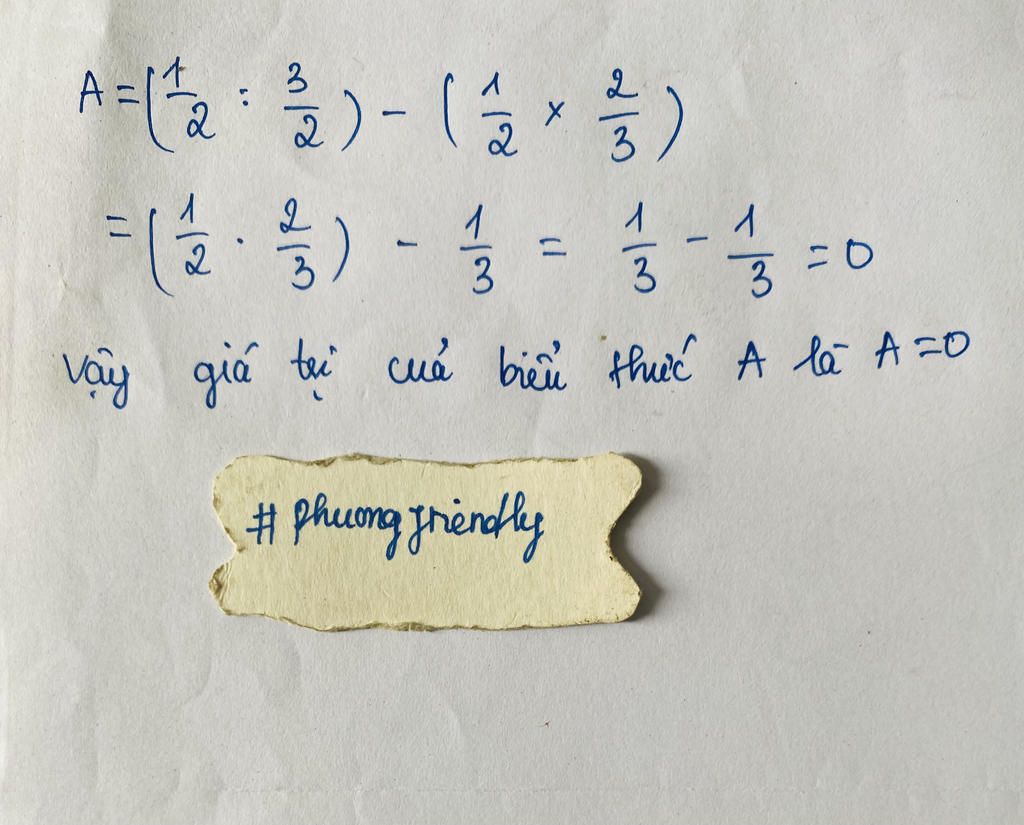 A = (1/2 : 3/2) - (1/2 × 2/3)
= (1/2 . 2/3) - 1/3 = 1/3 - 1/3 = 0
Vậy giá trị của biểu thức A là A = 0
# phuongfriendly